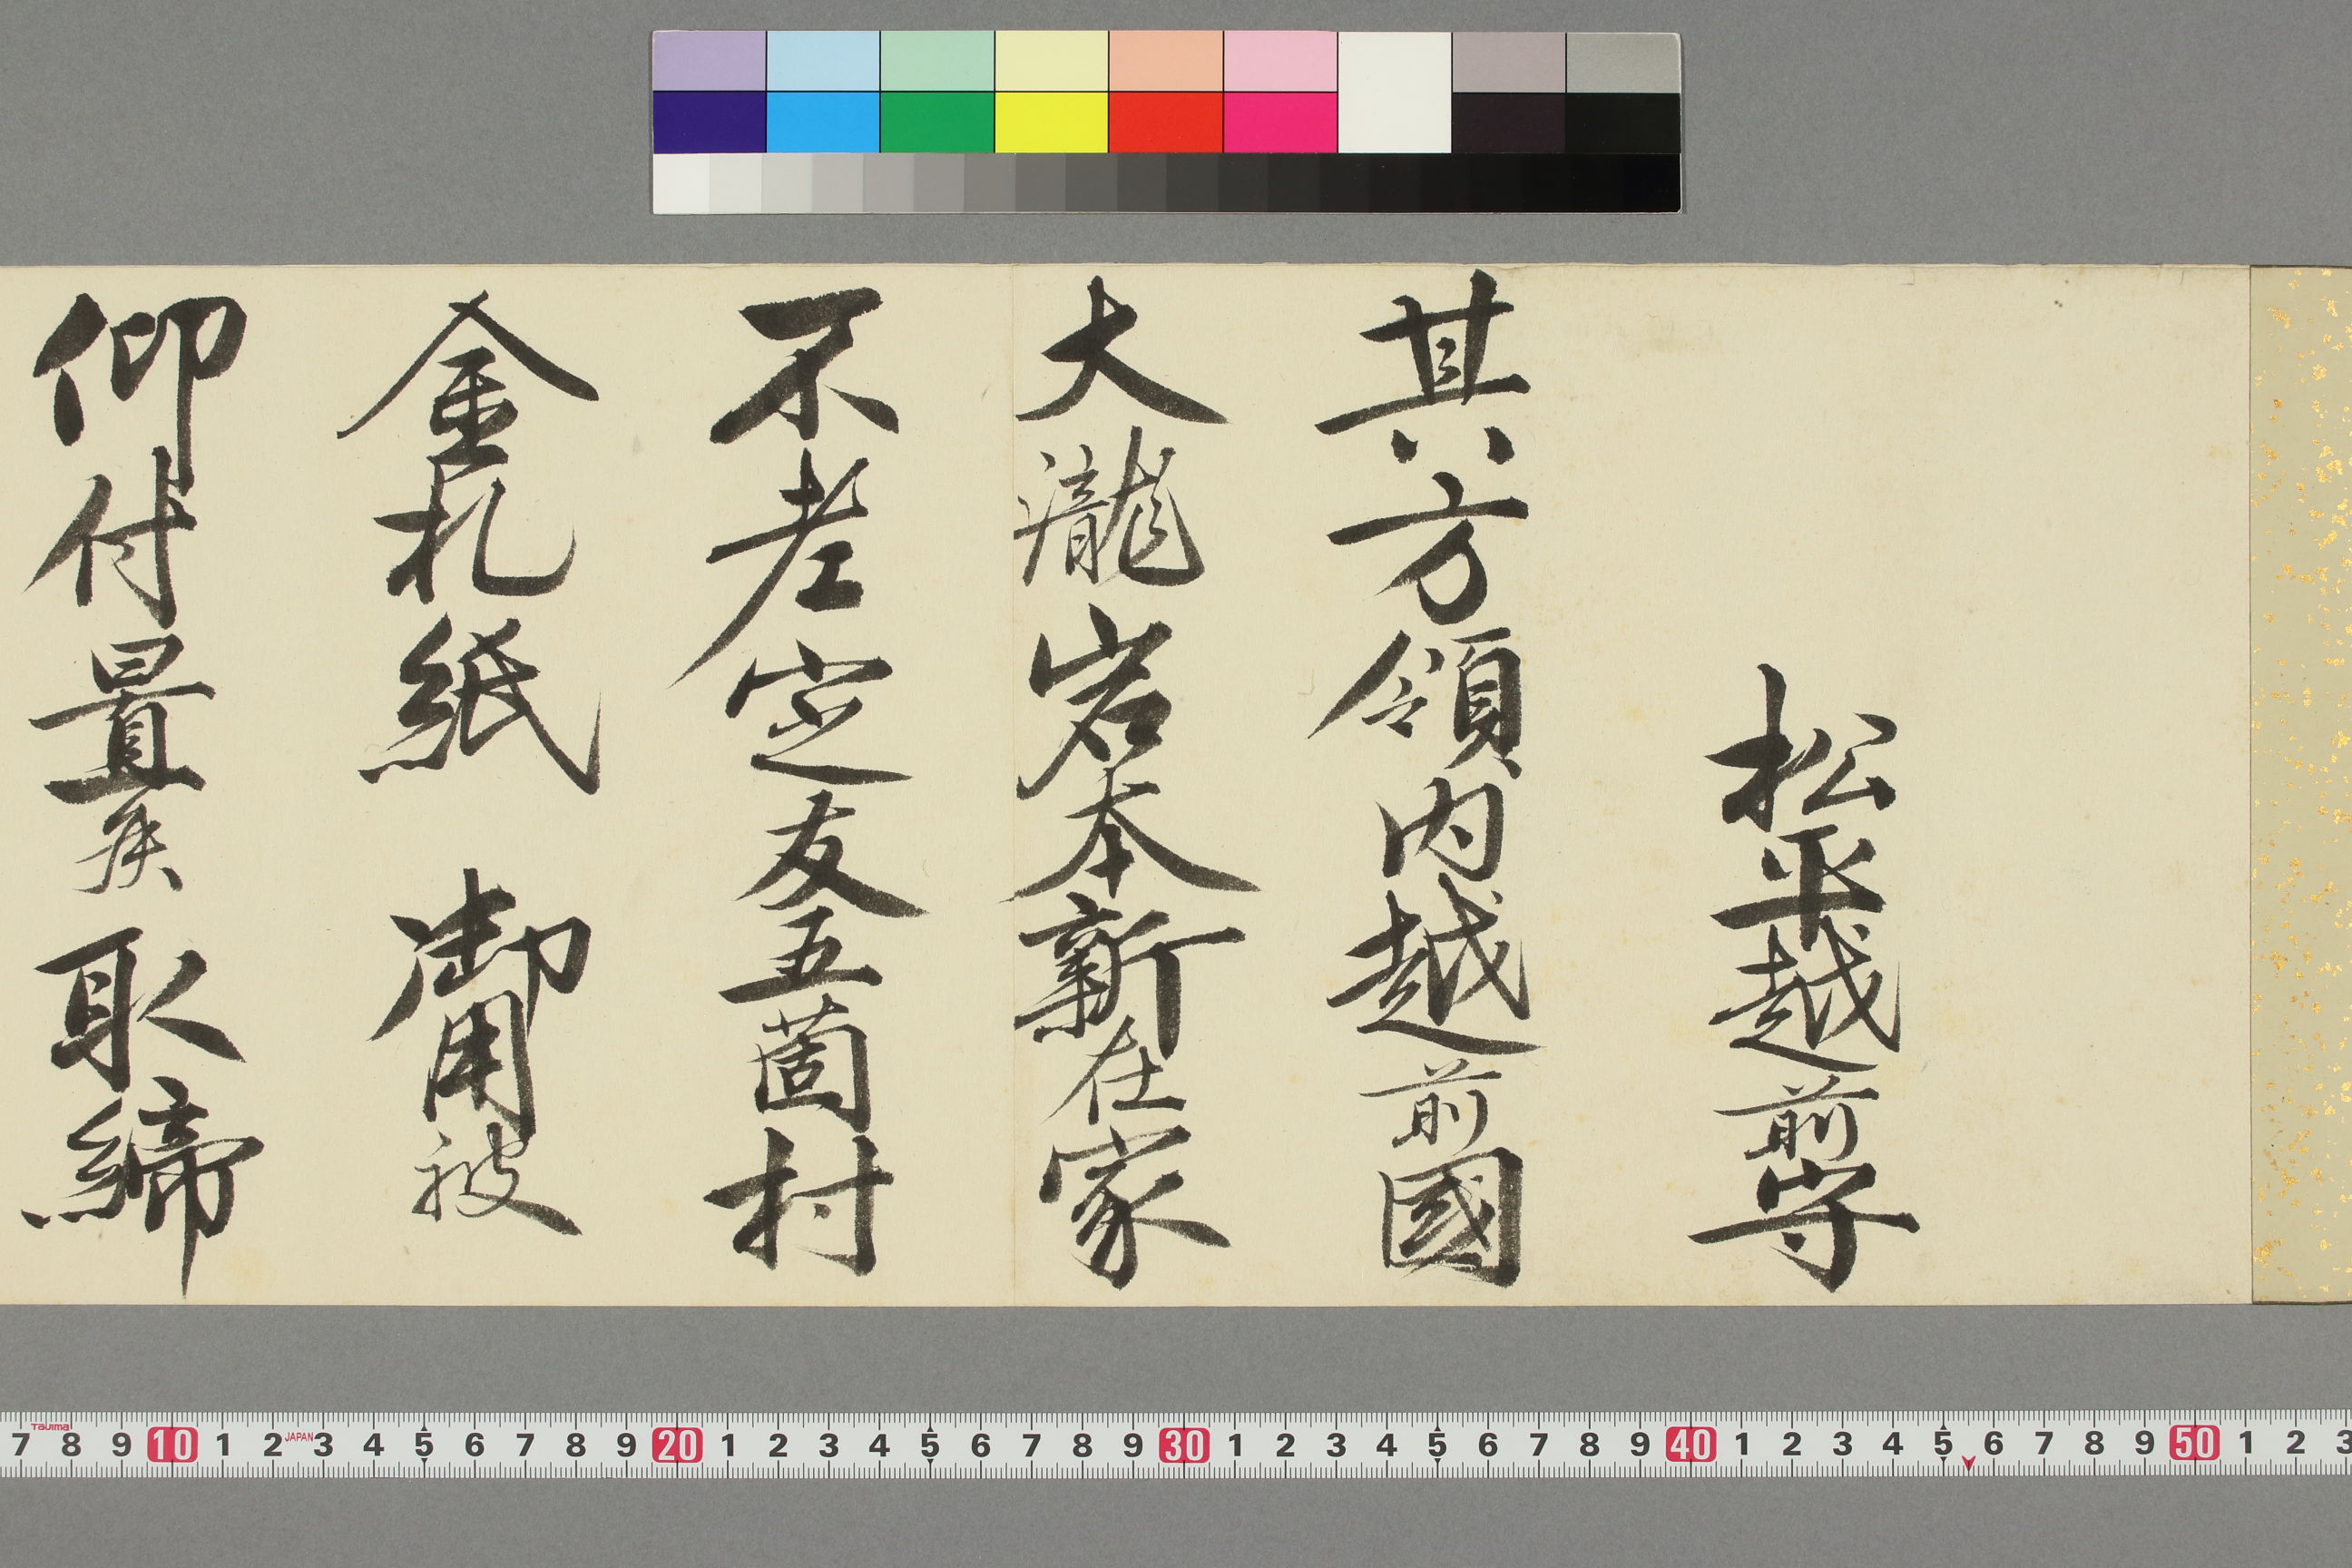 松平越前守
其方領内越前國
大瀧岩本新在家
不老定友五箇村
金札紙 御用被
仰付置候取締
7 8 9 10 1 2 3 4 5 6 7 8 9 20 1 2 3 4 5 6 7 8 9 30 1 2 3 4 5 6 7 8 9 40 1 2 3 4 5 6 7 8 9 50 1 2 3
Tajima
JAPAN